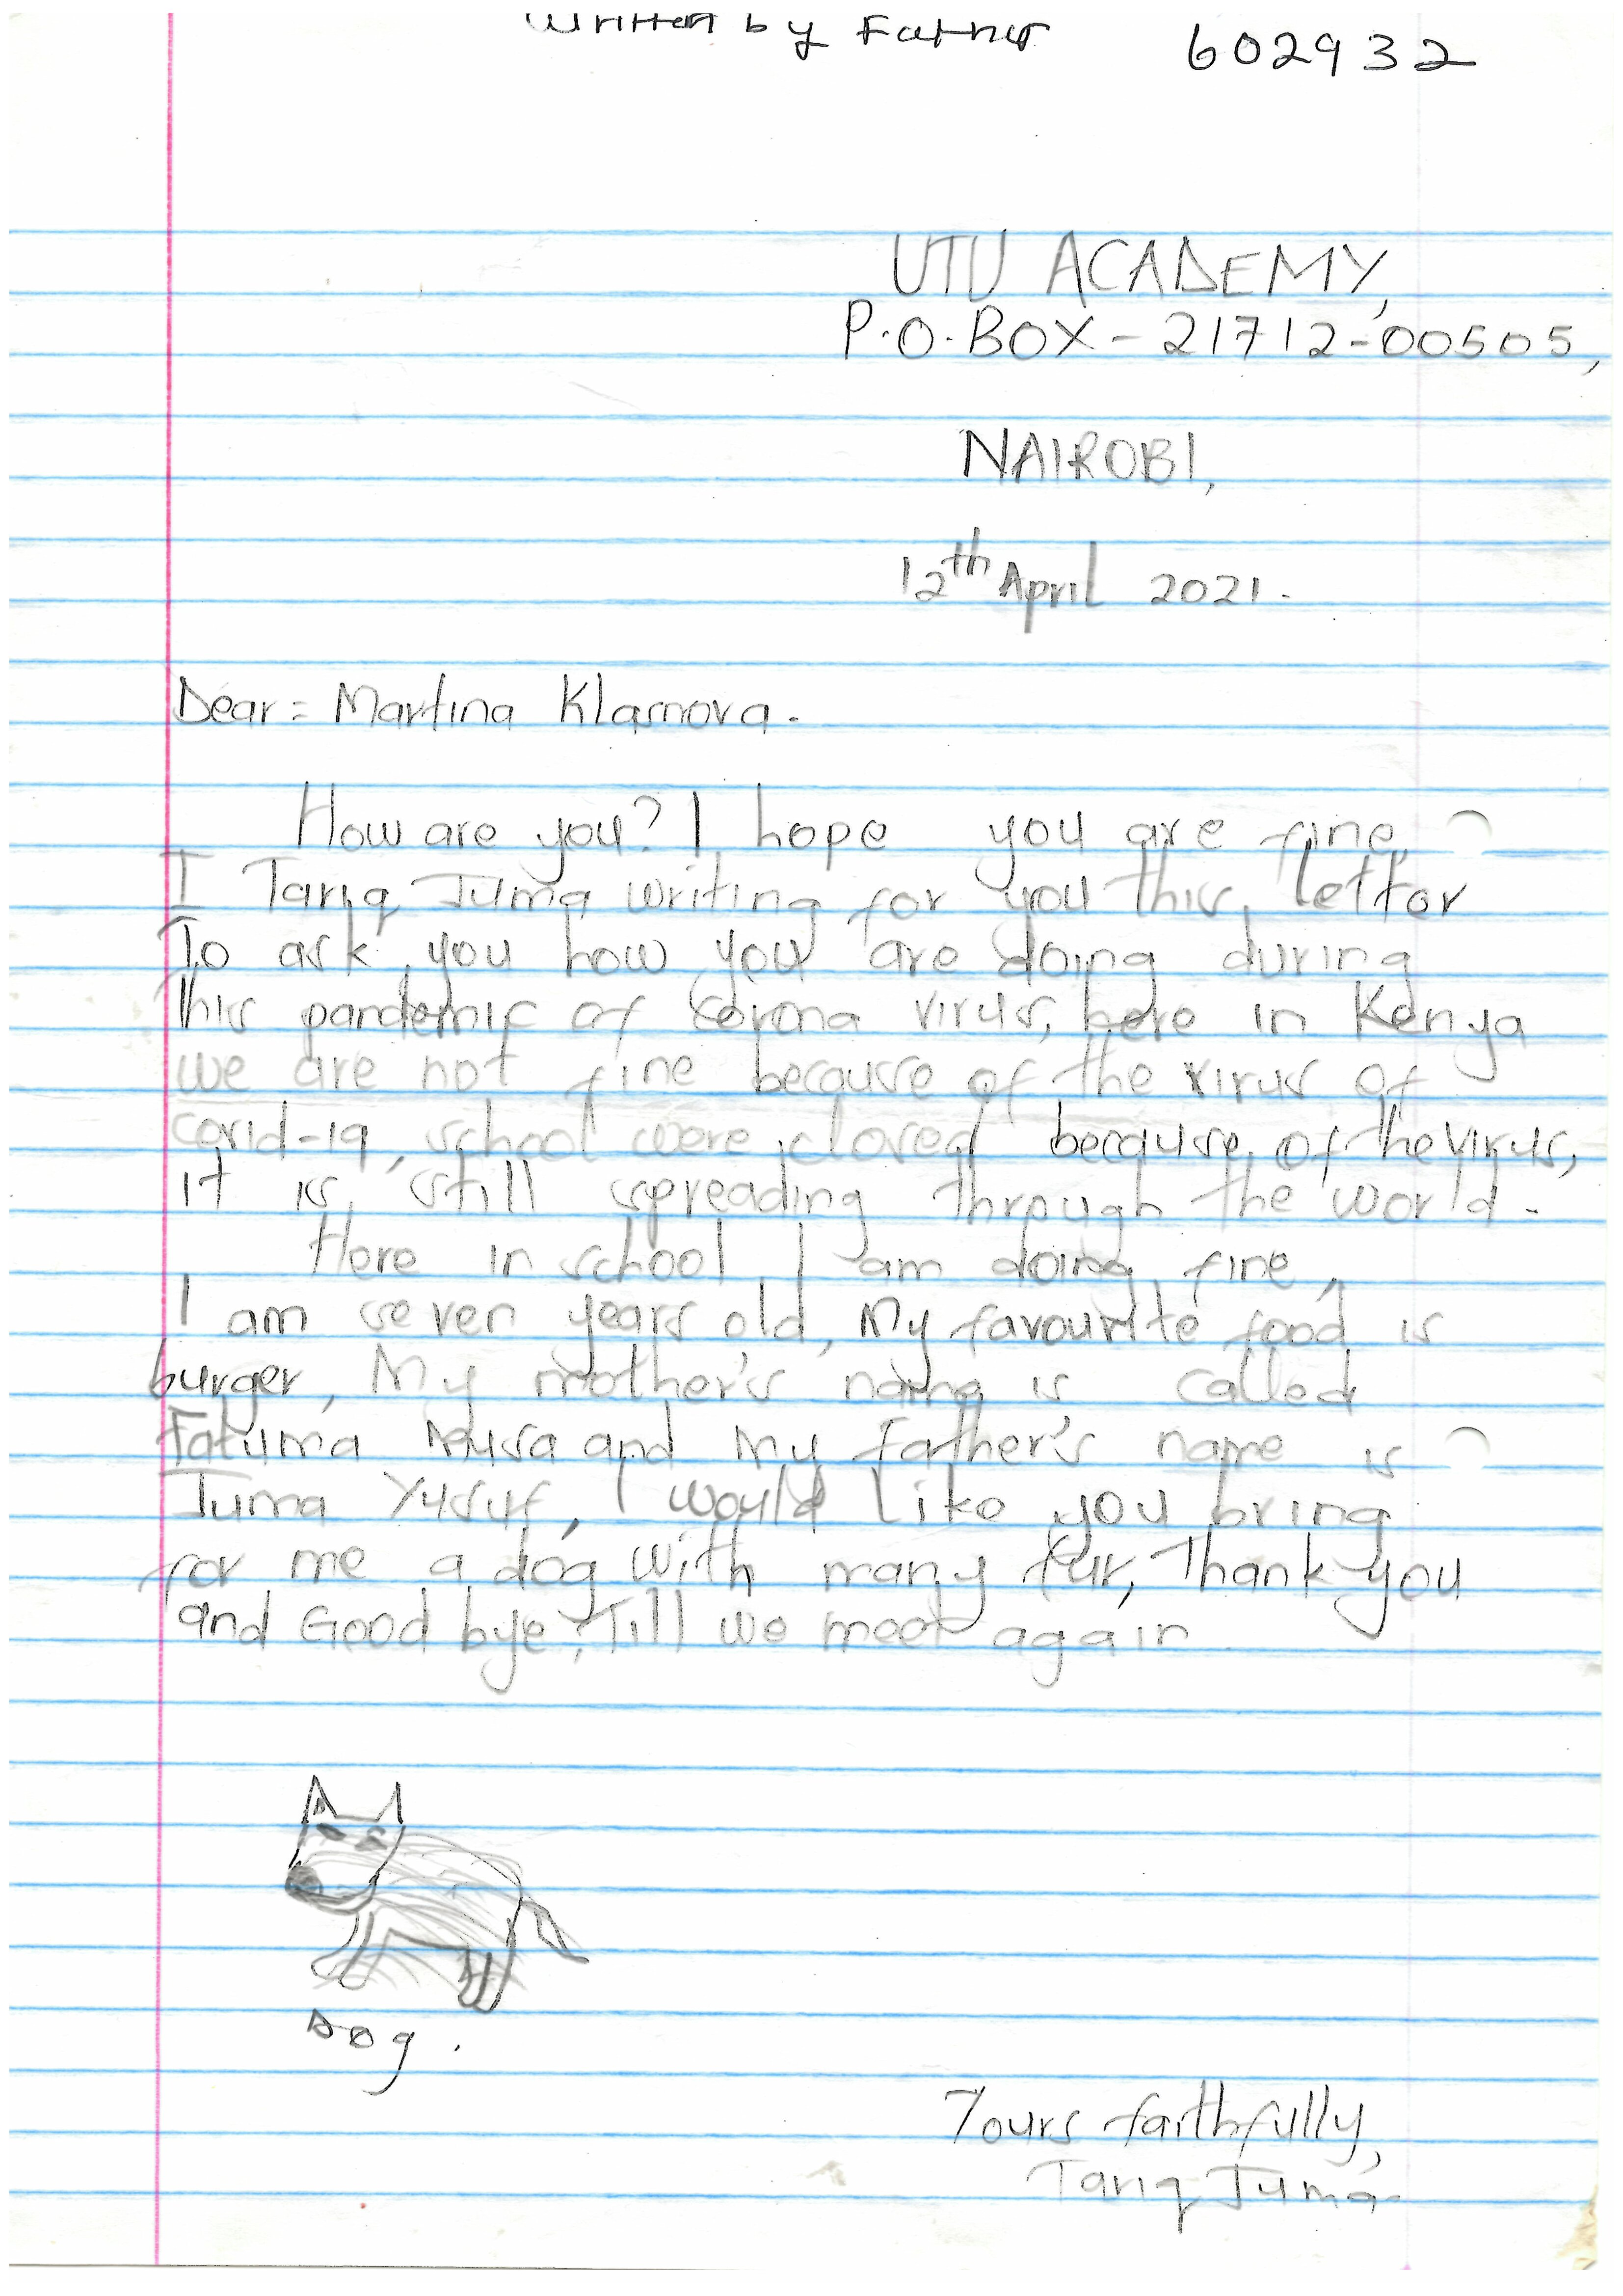 Written by Father 602932
UTU ACADEMY,
P.O.BOX - 21712-00505,
NAIROBI,
12th April 2021.
Dear = Martina Klamova.
How are you? I hope you are fine.
I Tariq Juma writing for you this, letter
To ask you how you are doing during
this pandemic of corona virus, here in Kenya
we are not fine because of the virus of
covid-19, school were closed because of the virus,
it is still spreading through the world.
Here in school I am doing fine,
I am seven years old, My favourite food is
burger, My mother's name is called
Fatuma Musa and My father's name is
Juma Yusuf, I would like you bring
for me a dog with many fur, Thank you
and Good bye, Till we meet again.
Dog.
Yours faithfully,
Tariq Juma